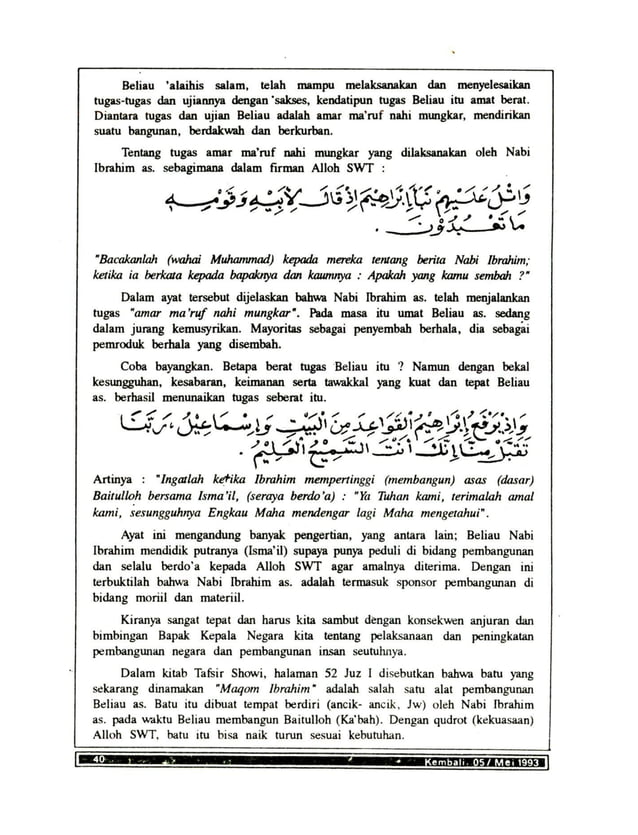 Beliau 'alaihis salam, telah mampu melaksanakan dan menyelesaikan
tugas-tugas dan ujiannya dengan 'sakses, kendatipun tugas Beliau itu amat berat.
Diantara tugas dan ujian Beliau adalah amar ma'ruf nahi mungkar, mendirikan
suatu bangunan, berdakwah dan berkurban.
Tentang tugas amar ma'ruf nahi mungkar yang dilaksanakan oleh Nabi
Ibrahim as. sebagimana dalam firman Alloh SWT :
وَاتْلُ عَلَيْهِمْ نَبَأَ إِبْرَاهِيمَ إِذْ قَالَ لِأَبِيهِ وَقَوْمِهِ
مَا تَعْبُدُونَ .
"Bacakanlah (wahai Muhammad) kepada mereka tentang berita Nabi Ibrahim;
ketika ia berkata kepada bapaknya dan kaumnya : Apakah yang kamu sembah ?"
Dalam ayat tersebut dijelaskan bahwa Nabi Ibrahim as. telah menjalankan
tugas "amar ma'ruf nahi mungkar". Pada masa itu umat Beliau as. sedang
dalam jurang kemusyrikan. Mayoritas sebagai penyembah berhala, dia sebagai
pemroduk berhala yang disembah.
Coba bayangkan. Betapa berat tugas Beliau itu ? Namun dengan bekal
kesungguhan, kesabaran, keimanan serta tawakkal yang kuat dan tepat Beliau
as. berhasil menunaikan tugas seberat itu.
وَإِذْ يَرْفَعُ إِبْرَاهِيمُ الْقَوَاعِدَ مِنَ الْبَيْتِ وَإِسْمَاعِيلُ ، رَبَّنَا
تَقَبَّلْ مِنَّا إِنَّكَ أَنْتَ السَّمِيعُ الْعَلِيمُ .
Artinya : "Ingatlah ketika Ibrahim mempertinggi (membangun) asas (dasar)
Baitulloh bersama Isma'il, (seraya berdo'a) : "Ya Tuhan kami, terimalah amal
kami, sesungguhnya Engkau Maha mendengar lagi Maha mengetahui".
Ayat ini mengandung banyak pengertian, yang antara lain; Beliau Nabi
Ibrahim mendidik putranya (Isma'il) supaya punya peduli di bidang pembangunan
dan selalu berdo'a kepada Alloh SWT agar amalnya diterima. Dengan ini
terbuktilah bahwa Nabi Ibrahim as. adalah termasuk sponsor pembangunan di
bidang moriil dan materiil.
Kiranya sangat tepat dan harus kita sambut dengan konsekwen anjuran dan
bimbingan Bapak Kepala Negara kita tentang pelaksanaan dan peningkatan
pembangunan negara dan pembangunan insan seutuhnya.
Dalam kitab Tafsir Showi, halaman 52 Juz I disebutkan bahwa batu yang
sekarang dinamakan "Maqom Ibrahim" adalah salah satu alat pembangunan
Beliau as. Batu itu dibuat tempat berdiri (ancik- ancik, Jw) oleh Nabi Ibrahim
as. pada waktu Beliau membangun Baitulloh (Ka'bah). Dengan qudrot (kekuasaan)
Alloh SWT, batu itu bisa naik turun sesuai kebutuhan.
40
Kembali. 05/ Mei 1993